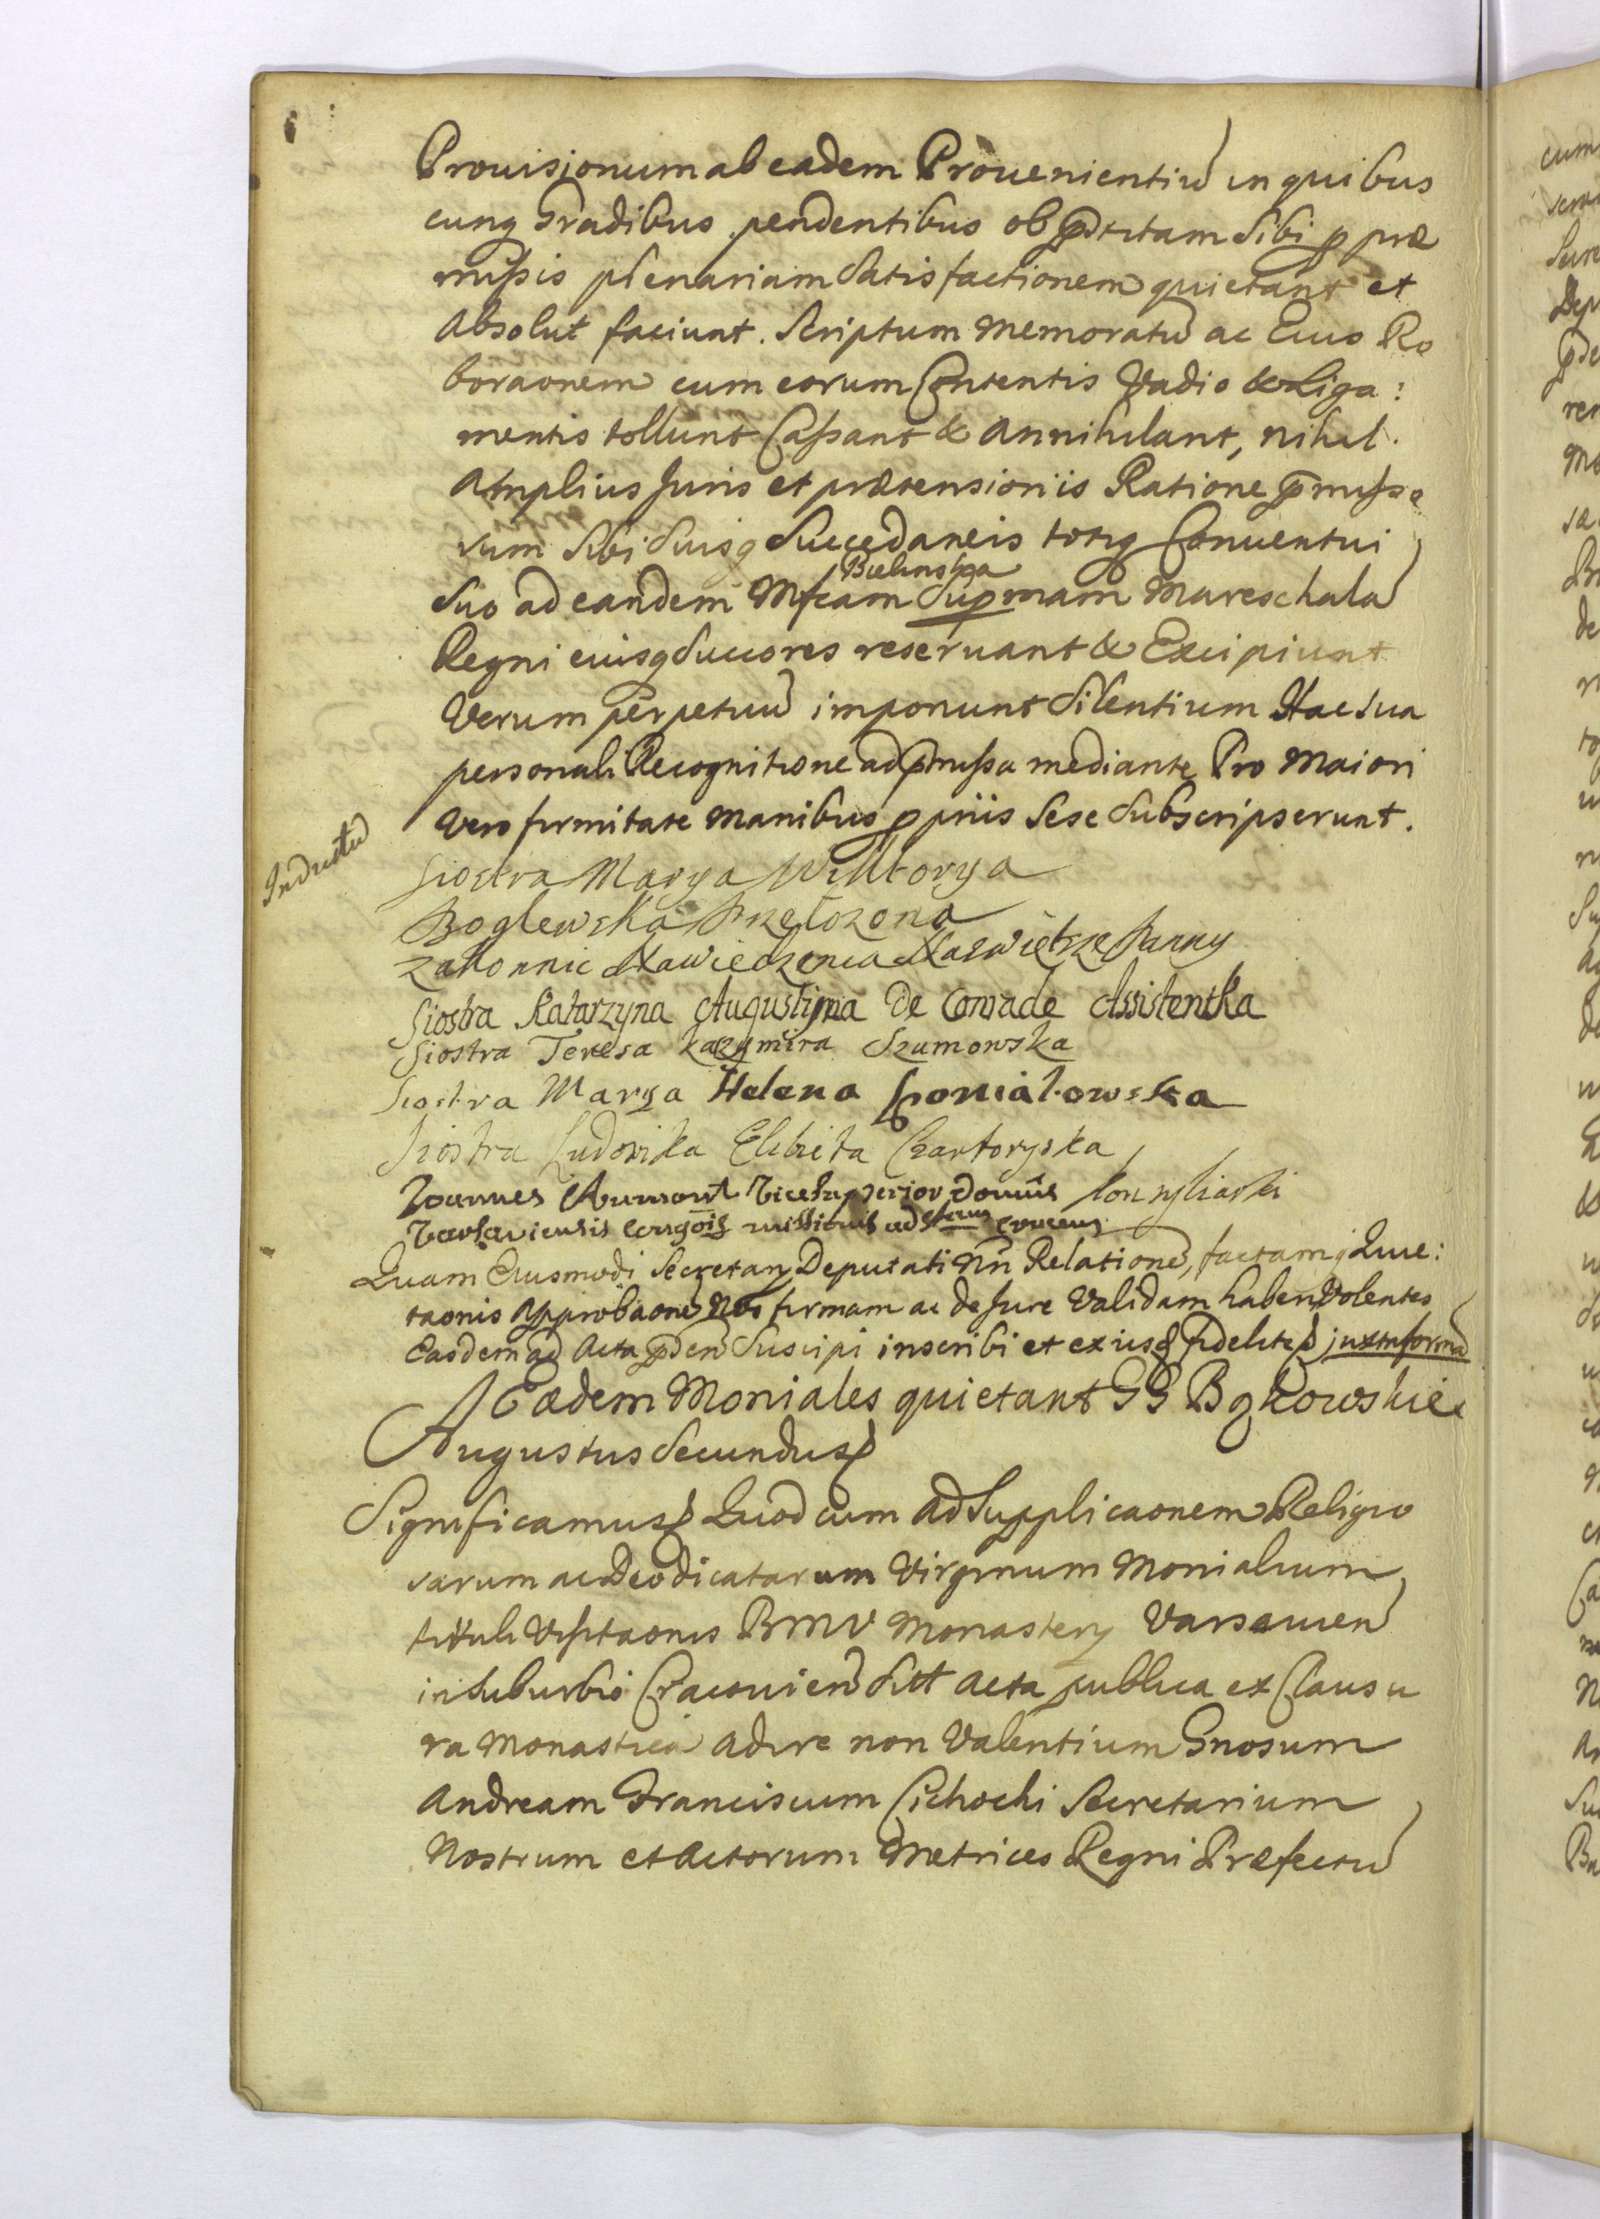 Provisionum ab eadem Prouenientiũ in quibus
cunq Gradibus pendentibus ob p̃stitam Sibi p præ
missis plenariam Satisfactionem quietant et
Absolut faciunt. Scriptum Memoratũ ac Eius Ro
boraonem cum eorum Contentis Vadio & Liga:
mentis tollunt Cassant & Annihilant, nihil
Amplius Juris et prætensioniis Ratione p̃misso
rum Sibi Suisq Succedaneis totiq Conuentui
Bielinska
Suo ad eandem Mfcam Supremam Mareschalã
Regni eiusq Succores reseruant & Excipiunt
Verum perpetuũ imponunt Silentium Hac Sua
personali Recognitione ad p̃missa mediante Pro Maiori
Vero firmitate Manibus ppriis Sese Subscripserunt.
Inductũ
Siostra Marya Wiktorya
Boglewska Przełozona
zakonnic Nawiedzenia Naswiętsze Panny
Siostra Katarzyna Augustyna De Conrade Assistentka
Siostra Teresa Kazymira Szumowska
Siostra Marya Helena Poniatowska
Siostra Ludowika Elzbieta Czartoryska
Joannes Aumont Vicesuperior Domûs Konsyliarki
Varsaviensis Congõis missionis ad Stam Crucem
Quam Eiusmodi Secretarÿ Deputati Nri Relationẽ, factamq Quie:
taonis Approbaonẽ Nos firmam ac de Jure Validam haben Volentes
Easdem ad Acta p̃den Suscipi inscribi et ex iisq fidelitẽ juxta formã
Eædem Moniales quietant GG Bąkowskie
Augustus Secundus
Significamus Quod cum ad Supplicaonem Religio
sarum ac Deo dicatarum Virginum Monialium
tituli Visitaonis BMV Monasterÿ Varsauieñ
in Suburbio Cracouieñ Sitt Acta publica ex Clausu
ra Monastica adire non Valentium Gnosum
Andream Franciscum Cichocki Secretarium
Nostrum et Actorum Metrices Regni Præfectũ